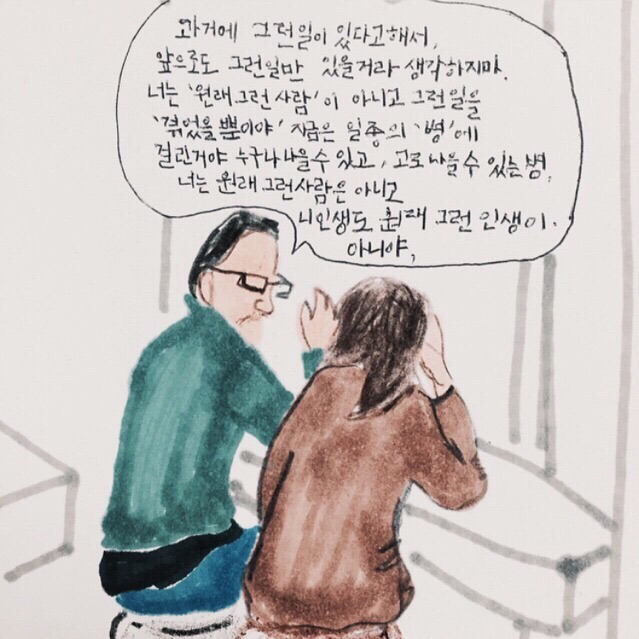 과거에 그런일이 있다고해서,
앞으로도 그런일만 있을거라 생각하지마.
너는 '원래 그런 사람'이 아니고 그런일을
'겪었을 뿐이야' 지금은 일종의 '병'에
걸린거야 누구나 나을수 있고, 고로 나을 수 있는 병,
너는 원래 그런사람은 아니고
니인생도 원래 그런 인생이.
아니야,